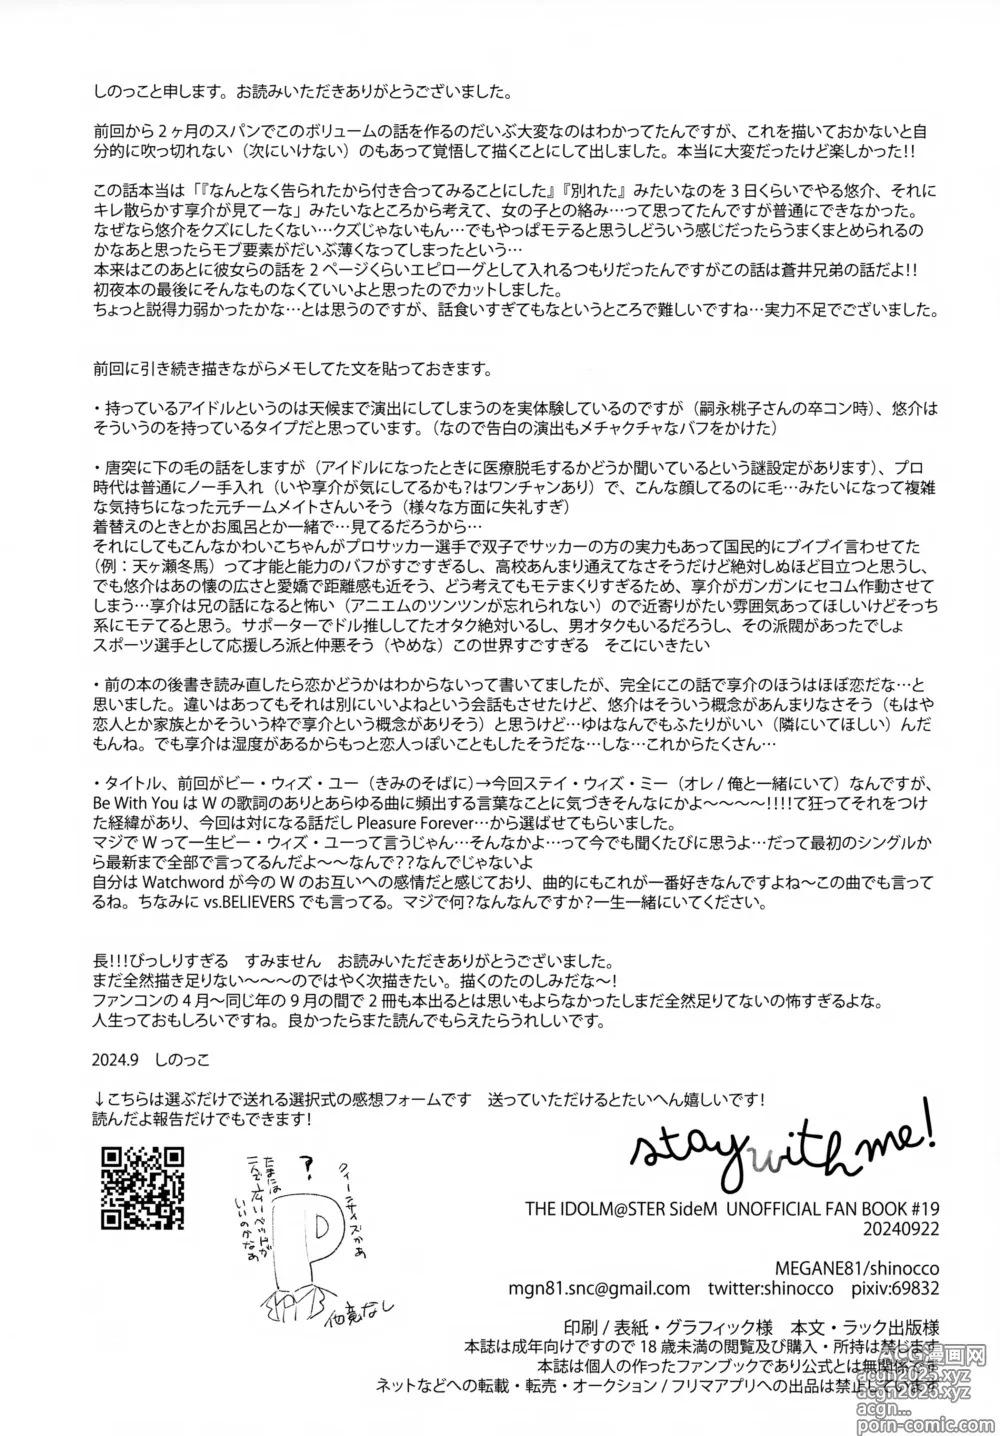 しのっこと申します。お読みいただきありがとうございました。
前回から2ヶ月のスパンでこのボリュームの話を作るのだいぶ大変なのはわかってたんですが、これを描いておかないと自
分的に吹っ切れない（次にいけない）のもあって覚悟して描くことにして出しました。本当に大変だったけど楽しかった!!
この話本当は「『なんとなく告られたから付き合ってみることにした』『別れた』みたいなのを3日くらいでやる悠介、それに
キレ散らかす享介が見てーな」みたいなところから考えて、女の子との絡み…って思ってたんですが普通にできなかった。
なぜなら悠介をクズにしたくない…クズじゃないもん…でもやっぱモテると思うしどういう感じだったらうまくまとめられるの
かなあと思ったらモブ要素がだいぶ薄くなってしまったという…
本来はこのあとに彼女らの話を2ページくらいエピローグとして入れるつもりだったんですがこの話は蒼井兄弟の話だよ!!
初夜本の最後にそんなものなくていいよと思ったのでカットしました。
ちょっと説得力弱かったかな…とは思うのですが、話食いすぎてもなというところで難しいですね…実力不足でございました。
前回に引き続き描きながらメモしてた文を貼っておきます。
・持っているアイドルというのは天候まで演出にしてしまうのを実体験しているのですが（嗣永桃子さんの卒コン時）、悠介は
そういうのを持っているタイプだと思っています。（なので告白の演出もメチャクチャなバフをかけた）
・唐突に下の毛の話をしますが（アイドルになったときに医療脱毛するかどうか聞いているという謎設定があります）、プロ
時代は普通にノー手入れ（いや享介が気にしてるかも?はワンチャンあり）で、こんな顔してるのに毛…みたいになって複雑
な気持ちになった元チームメイトさんいそう（様々な方面に失礼すぎ）
着替えのときとかお風呂とか一緒で…見てるだろうから…
それにしてもこんなかわいこちゃんがプロサッカー選手で双子でサッカーの方の実力もあって国民的にブイブイ言わせてた
（例：天ヶ瀬冬馬）って才能と能力のバフがすごすぎるし、高校あんまり通えてなさそうだけど絶対しぬほど目立つと思うし、
でも悠介はあの懐の広さと愛嬌で距離感も近そう、どう考えてもモテまくりすぎるため、享介がガンガンにセコム作動させて
しまう…享介は兄の話になると怖い（アニエムのツンツンが忘れられない）ので近寄りがたい雰囲気あってほしいけどそっち
系にモテてると思う。サポーターでドル推ししてたオタク絶対いるし、男オタクもいるだろうし、その派閥があったでしょ
スポーツ選手として応援しろ派と仲悪そう（やめな）この世界すごすぎる　そこにいきたい
・前の本の後書き読み直したら恋かどうかはわからないって書いてましたが、完全にこの話で享介のほうはほぼ恋だな…と
思いました。違いはあってもそれは別にいいよねという会話もさせたけど、悠介はそういう概念があんまりなさそう（もはや
恋人とか家族とかそういう枠で享介という概念がありそう）と思うけど…ゆはなんでもふたりがいい（隣にいてほしい）んだ
もんね。でも享介は湿度があるからもっと恋人っぽいこともしたそうだな…しな…これからたくさん…
・タイトル、前回がビー・ウィズ・ユー（きみのそばに）→今回ステイ・ウィズ・ミー（オレ/俺と一緒にいて）なんですが、
Be With YouはWの歌詞のありとあらゆる曲に頻出する言葉なことに気づきそんなにかよ〜〜〜〜!!!!て狂ってそれをつけ
た経緯があり、今回は対になる話だしPleasure Forever…から選ばせてもらいました。
マジでWって一生ビー・ウィズ・ユーって言うじゃん…そんなかよ…って今でも聞くたびに思うよ…だって最初のシングルか
ら最新まで全部で言ってるんだよ〜〜なんで??なんでじゃないよ
自分はWatchwordが今のWのお互いへの感情だと感じており、曲的にもこれが一番好きなんですよね〜この曲でも言って
るね。ちなみにvs.BELIEVERSでも言ってる。マジで何?なんなんですか?一生一緒にいてください。
長!!!びっしりすぎる　すみません　お読みいただきありがとうございました。
まだ全然描き足りない〜〜〜のではやく次描きたい。描くのたのしみだな〜!
ファンコンの4月〜同じ年の9月の間で2冊も本出るとは思いもよらなかったしまだ全然足りてないの怖すぎるよな。
人生っておもしろいですね。良かったらまた読んでもらえたらうれしいです。
2024.9　しのっこ
↓こちらは選ぶだけで送れる選択式の感想フォームです　送っていただけるとたいへん嬉しいです!
読んだよ報告だけでもできます!
stay with me!
?
クィーンサイズかあ
たまには
二人で広いベッドが
いいのかなあ
P
他意なし
THE IDOLM@STER SideM UNOFFICIAL FAN BOOK #19
20240922
MEGANE81/shinocco
mgn81.snc@gmail.com twitter:shinocco pixiv:69832
印刷/表紙・グラフィック様　本文・ラック出版様
本誌は成年向けですので18歳未満の閲覧及び購入・所持は禁じます
本誌は個人の作ったファンブックであり公式とは無関係です
ネットなどへの転載・転売・オークション/フリマアプリへの出品は禁止しています
ACG漫画网
acgn2023.xyz
acgn2025.xyz
acgn...
porn-comic.com